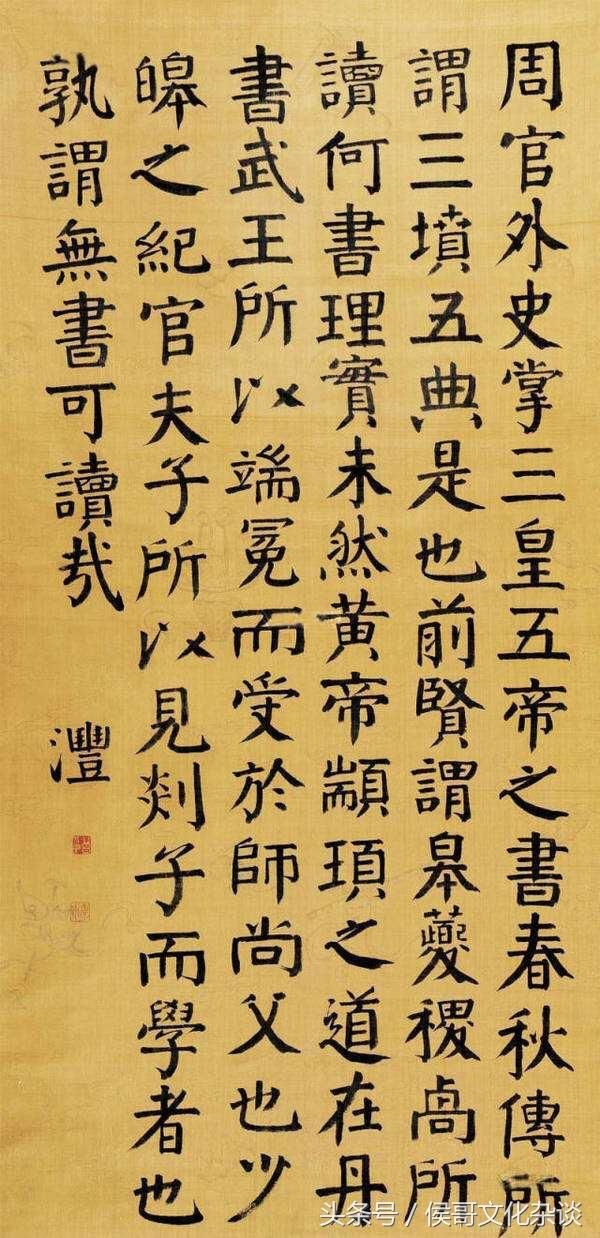 周官外史掌三皇五帝之書春秋傳所
謂三墳五典是也前賢謂皋夔稷卨所
讀何書理實未然黃帝顓頊之道在丹
書武王所以端冕而受於師尚父也少
皞之紀官夫子所以見郯子而學者也
孰謂無書可讀哉
灃
头条号/侯哥文化杂谈